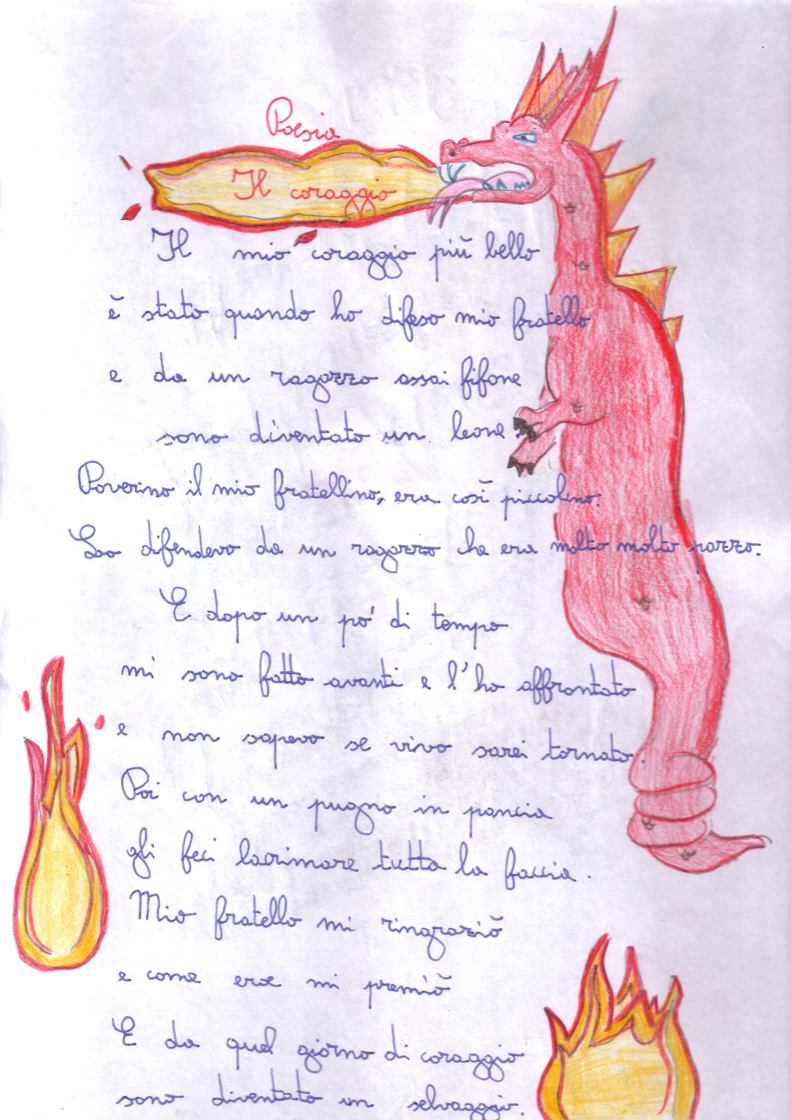 Poesia
Il coraggio
Il mio coraggio più bello
è stato quando ho difeso mio fratello
e da un ragazzo assai fifone
sono diventato un leone
Poverino il mio fratellino, era così piccolino.
Lo difendevo da un ragazzo che era molto molto pazzo.
E dopo un po' di tempo
mi sono fatto avanti e l'ho affrontato
e non sapevo se vivo sarei tornato.
Poi con un pugno in pancia
gli feci lacrimare tutta la faccia.
Mio fratello mi ringraziò
e come eroe mi premiò
E da quel giorno di coraggio
sono diventato un selvaggio.